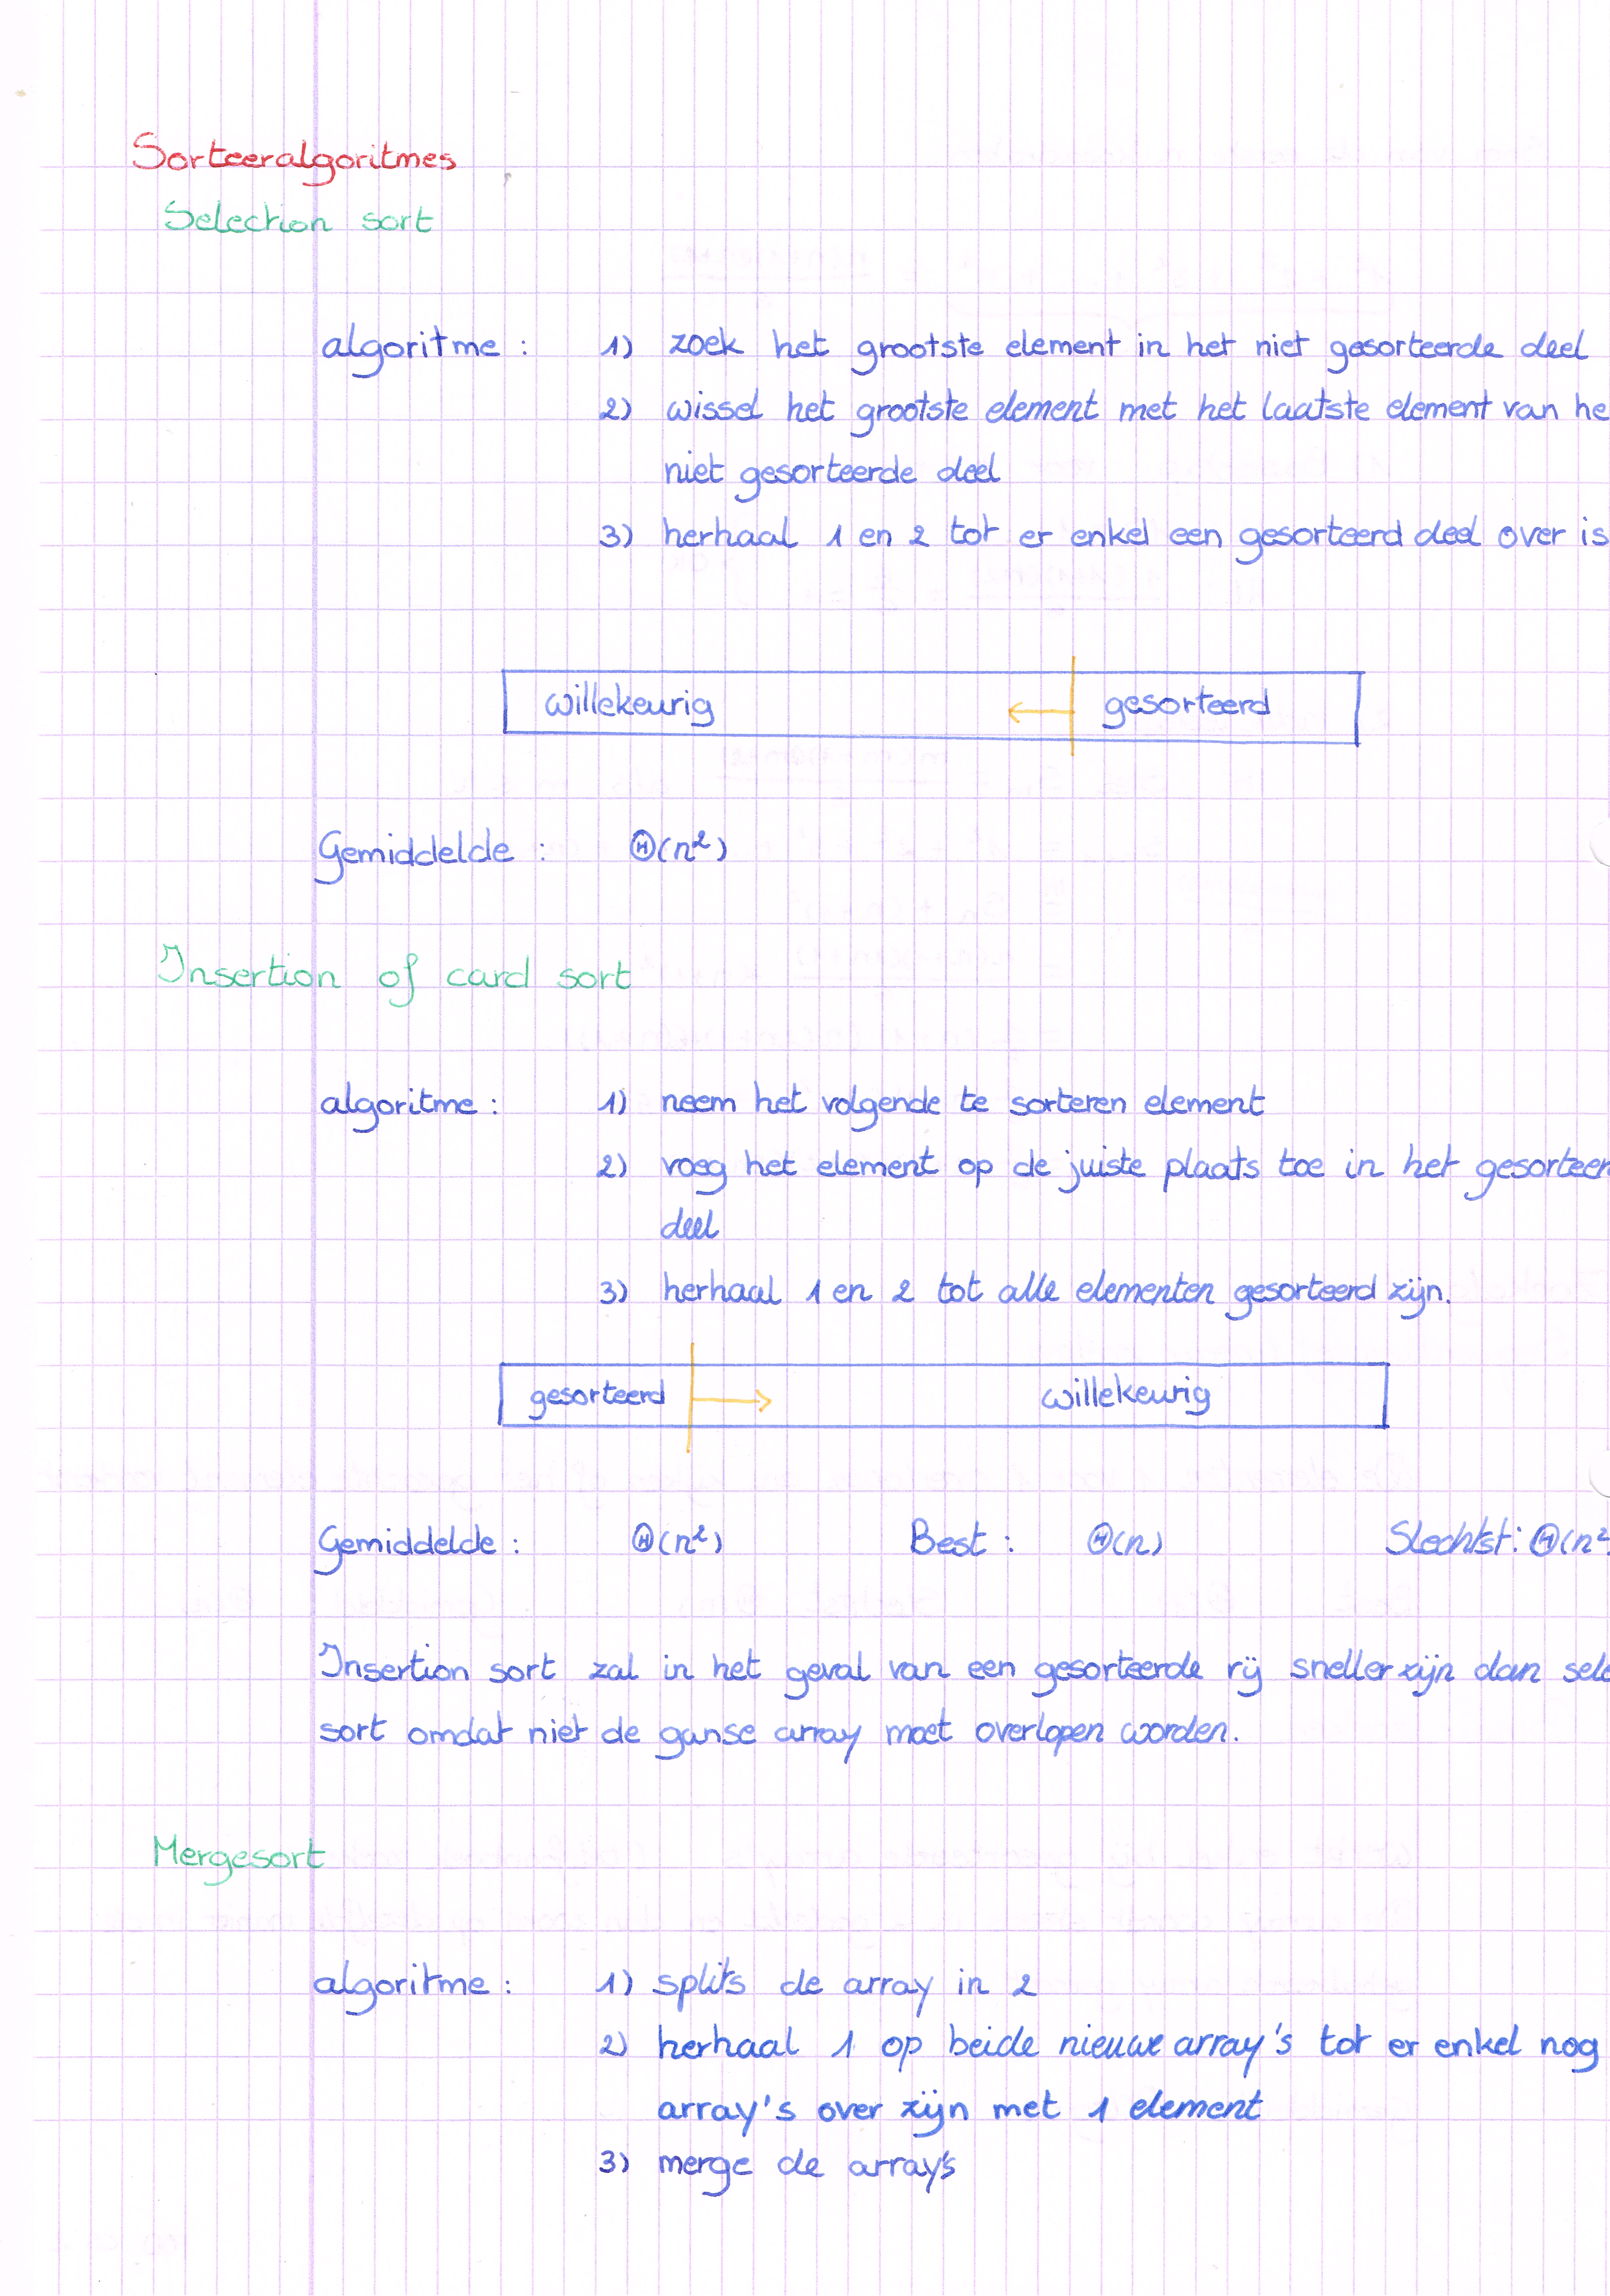 Sorteeralgoritmes
Selection sort
algoritme : 1) zoek het grootste element in het niet gesorteerde deel
2) wissel het grootste element met het laatste element van he
niet gesorteerde deel
3) herhaal 1 en 2 tot er enkel een gesorteerd deel over is
willekeurig gesorteerd
Gemiddelde : Θ(n²)
Insertion of card sort
algoritme : 1) neem het volgende te sorteren element
2) voeg het element op de juiste plaats toe in het gesorteer
deel
3) herhaal 1 en 2 tot alle elementen gesorteerd zijn.
gesorteerd willekeurig
Gemiddelde : Θ(n²) Best : Θ(n) Slechtst : Θ(n²
Insertion sort zal in het geval van een gesorteerde rij sneller zijn dan sele
sort omdat niet de ganse array moet overlopen worden.
Mergesort
algoritme : 1) splits de array in 2
2) herhaal 1 op beide nieuwe array's tot er enkel nog
array's over zijn met 1 element
3) merge de array's